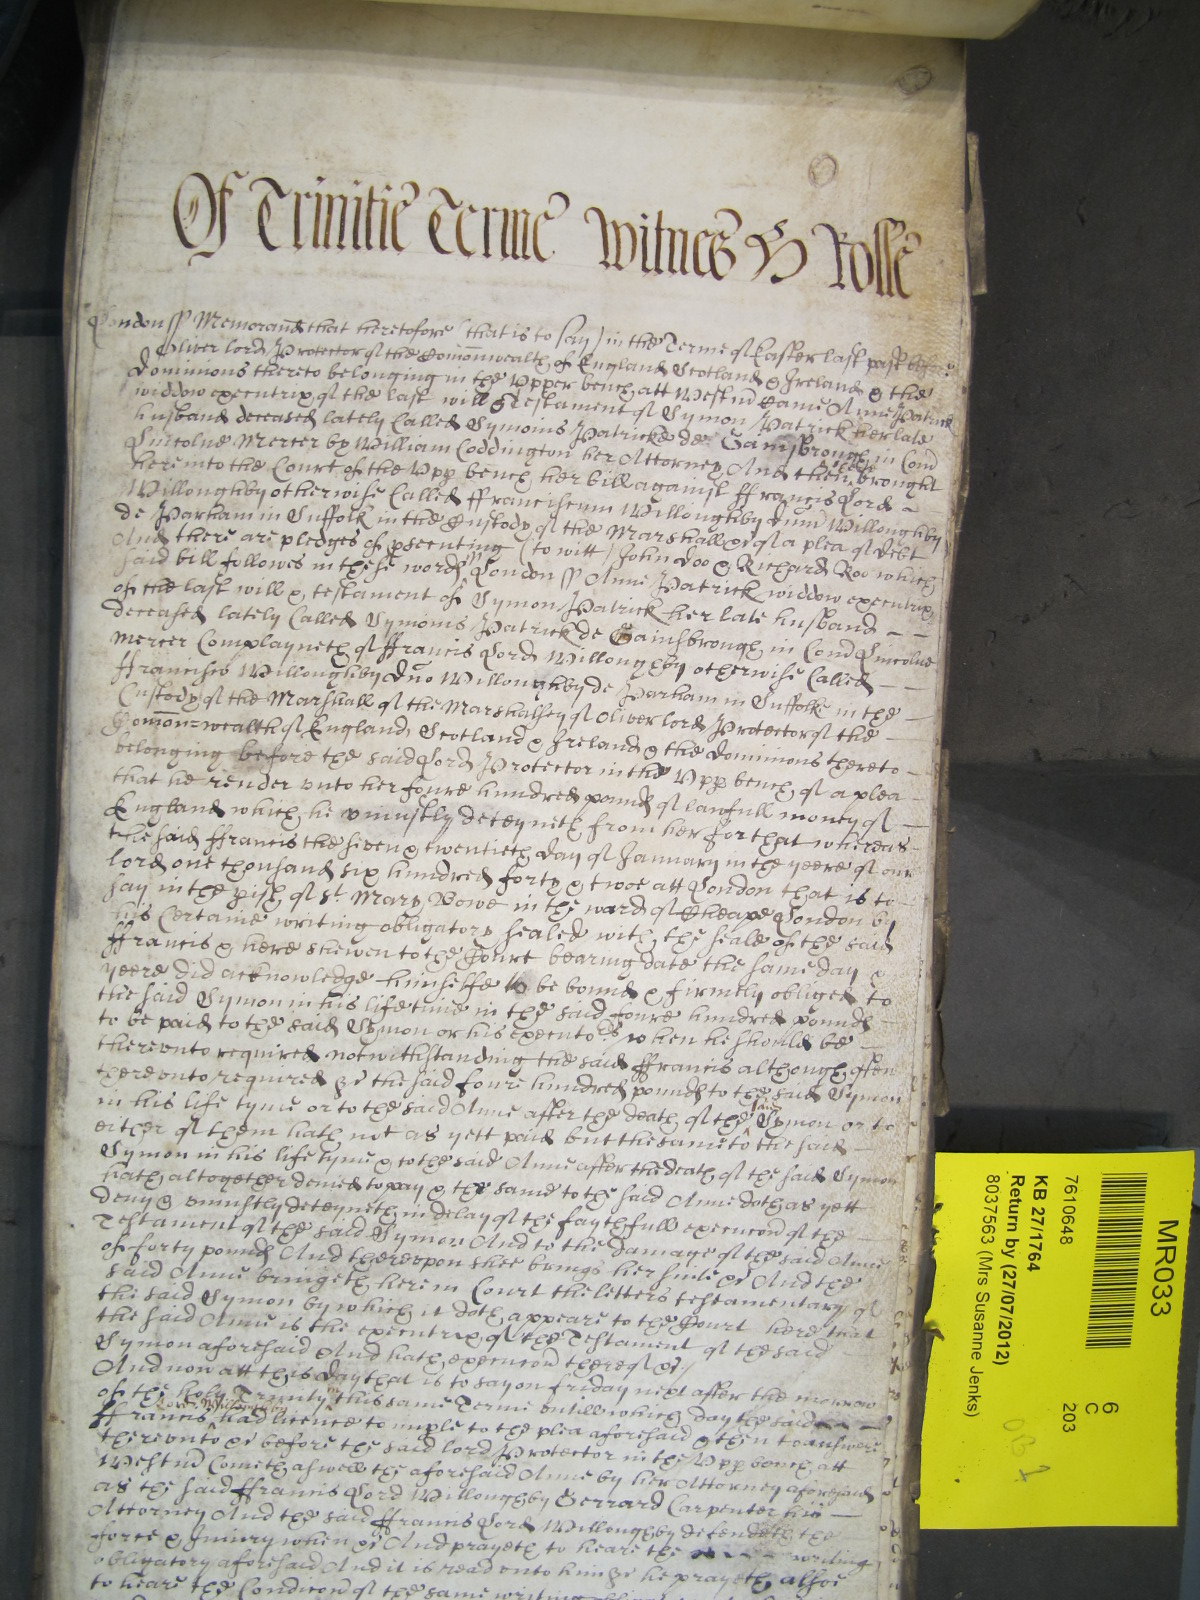 Of Trinitie Terme Witnes H Rolle
London ss Memorand that heretofore (that is to say) in the Terme of Easter last past before
Oliver lord Protector of the Comonwealth of England Scotland & Ireland & the
dominions thereto belonging in the Upper bench att Westmr Came Anne Patrick
widdow executrix of the last will & Testament of Symon Patrick her late
husband deceased lately Called Symonis Patricke de Gainsbrough in Com
Lincolne Mercer by William Coddington her Attorney And then brought
here into the Court of the Upp bench her bill against ffrancis Lord
Willoughby otherwise Called ffranciscum Willoughby dnm Willoughby
de Parham in Suffolk in the Custody of the Marshall &c of a plea of debt
And there are pledges of psecuting (to witt) John Doo & Richard Roo which
said bill followes in these words London ss Anne Patrick widdow executrix
of the last will & testament of Symon Patrick her late husband
deceased lately Called Symonis Patrick de Gainsbrough in Com Lincolne
Mercer Complayneth of ffrancis Lord Willoughby otherwise Called
ffrancisco Willoughby dno Willoughby de Parham in Suffolk in the
Custody of the Marshall of the Marshalsey of Oliver lord Protector of the
Comon=wealth of England Scotland & Ireland & the dominions thereto
belonging before the said Lord Protector in the Upp bench of a plea
that he render unto her foure hundred pounds of lawfull money of
England which he uniustly deteyneth from her for that whereas
the said ffrancis the seven & twentieth day of January in the yeere of our
lord one thousand six hundred forty & twoe att London that is to
say in the pish of St Mary Bowe in the ward of Cheape London by
his Certaine writing obligatory sealed with the seale of the said
ffrancis & here shewen to the Court bearing date the same day &
yeere did acknowledge himselfe to be bound & firmely obliged to
the said Symon in his life time in the said foure hundred pounds
to be paid to the said Symon or his executors when he should be
thereunto required notwithstanding the said ffrancis although often
thereunto required &c the said foure hundred pounds to the said Symon
in his life tyme or to the said Anne after the death of the said Symon or to
either of them hath not as yett paid but the same to the said
Symon in his life tyme & to the said Anne after the death of the said Symon
hath altogether denied to pay & the same to the said Anne doth as yett
deny & uniustly deteyneth in delay of the faythfull execucon of the
Testament of the said Symon And to the damage of the said Anne
of forty pounds And thereupon shee brings her suite &c And the
said Anne bringeth here in Court the letters testamentary of
the said Symon by which it doth appeare to the Court here that
the said Anne is the executrix of the Testament of the said
Symon aforesaid And hath execucon thereof &c
And now att this day that is to say on friday next after the morrow
of the holy Trinity in this same Terme untill which day the said
Lord Willoughby
ffrancis had licence to imple to the plea aforesaid & then to answere
thereunto &c before the said lord Protector in the Upp bench att
Westmr Cometh aswell the aforesaid Anne by her Attorney aforesaid
as the said ffrancis Lord Willoughby by Gerrard Carpenter his
Attorney And the said ffrancis Lord Willoughby defendeth the
force & Iniury when &c And prayeth to heare the writing
obligatory aforesaid And it is read unto him &c he prayeth alsoe
to heare the Condicon of the same writing
MR033
6
C
203
7610648
KB 27/1764
Return by (27/07/2012)
8037563 (Mrs Susanne Jenks)